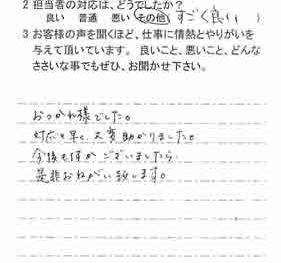 2 担当者の対応は、どうでしたか？
良い 普通 悪い その他 すごく良い
3 お客様の声を聞くほど、仕事に情熱とやりがいを
与えて頂いています。 良いこと、悪いこと、どんな
ささいな事でもぜひ、お聞かせ下さい。
おつかれ様でした。
対応も早く、大変助かりました。
今後も何かございましたら
是非おねがい致します。